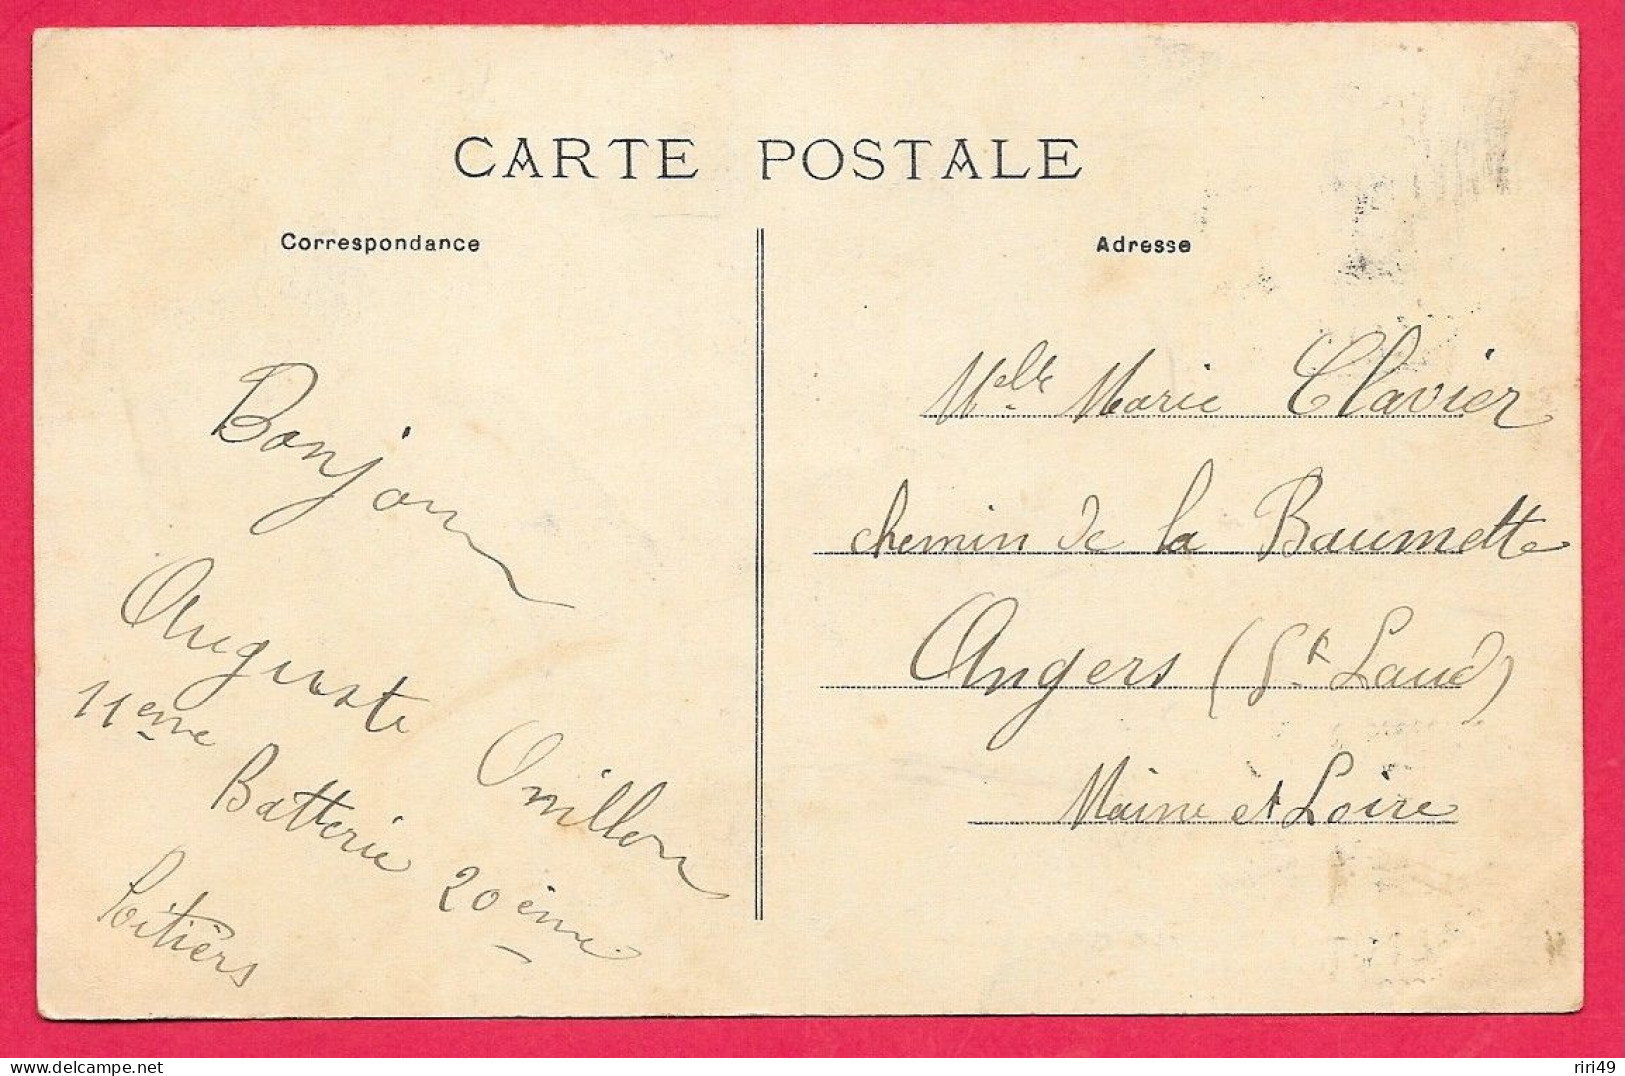 CARTE POSTALE
Correspondance
Bonjour
Auguste Ouillon
11eme Batterie 20ème
Poitiers
Adresse
Melle Marie Clavier
chemin de la Baumette
Angers (St Laud)
Maine et Loire
delcampe.net
riri49